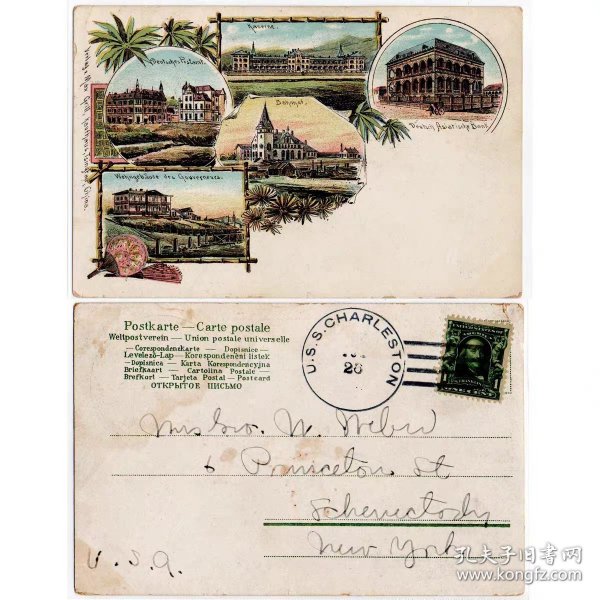 Kaserne.
Deutsches Postamt.
Bahnhof.
Deutsch Asiatische Bank.
Wohngebäude des Gouverneurs.
Postkarte — Carte postale
Weltpostverein — Union postale universelle
Corespondenzkarte — Dopisnice —
Levelező-Lap — Korespondenčni listek
— Dopisnica — Karta Korespondencyjna
Briefkaart — Cartolina Postale —
Brefkort — Tarjeta Postal — Postcard
ОТКРЫТОЕ ПИСЬМО
U.S.S. CHARLESTON
26
ONE CENT
Mrs Geo. W. Weber
6 Princeton St
Schenectady
New York
U.S.A.
孔夫子旧书网
www.kongfz.com